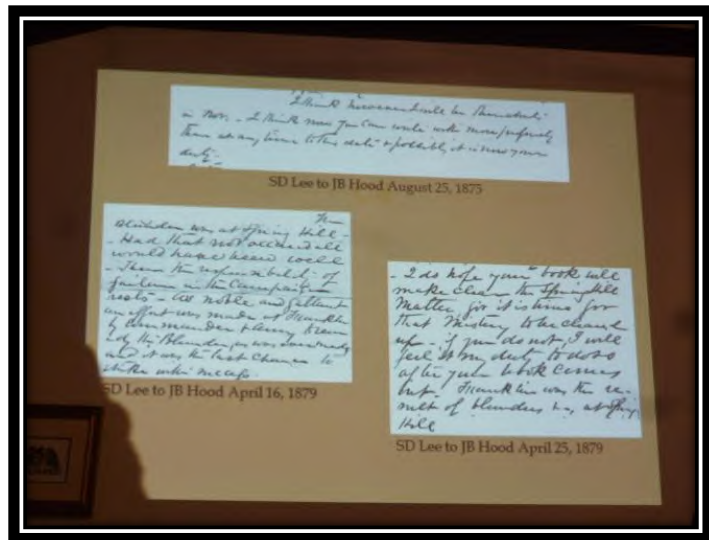 I think
in Nov. - I think now you can write with more propriety
than at any time to this date & possibly it is now your
duty -
SD Lee to JB Hood August 25, 1875
The
Blunder was at Spring Hill -
- Had that not occurred all
would have been well
- There the responsibility of
failure in the Campaign
rests - As noble and gallant
an effort was made at Franklin
by Commander & Army to rem-
edy the Blunder, as was ever made
and it was the last chance to
strike with success.
SD Lee to JB Hood April 16, 1879
- I do hope your book will
make clear the Spring Hill
Matter, for it is time for
that Mistery to be cleared
up - if you do not, I will
feel it my duty to do so
after your book comes
out - Franklin was the re-
sult of blunders at Spring
Hill
SD Lee to JB Hood April 25, 1879